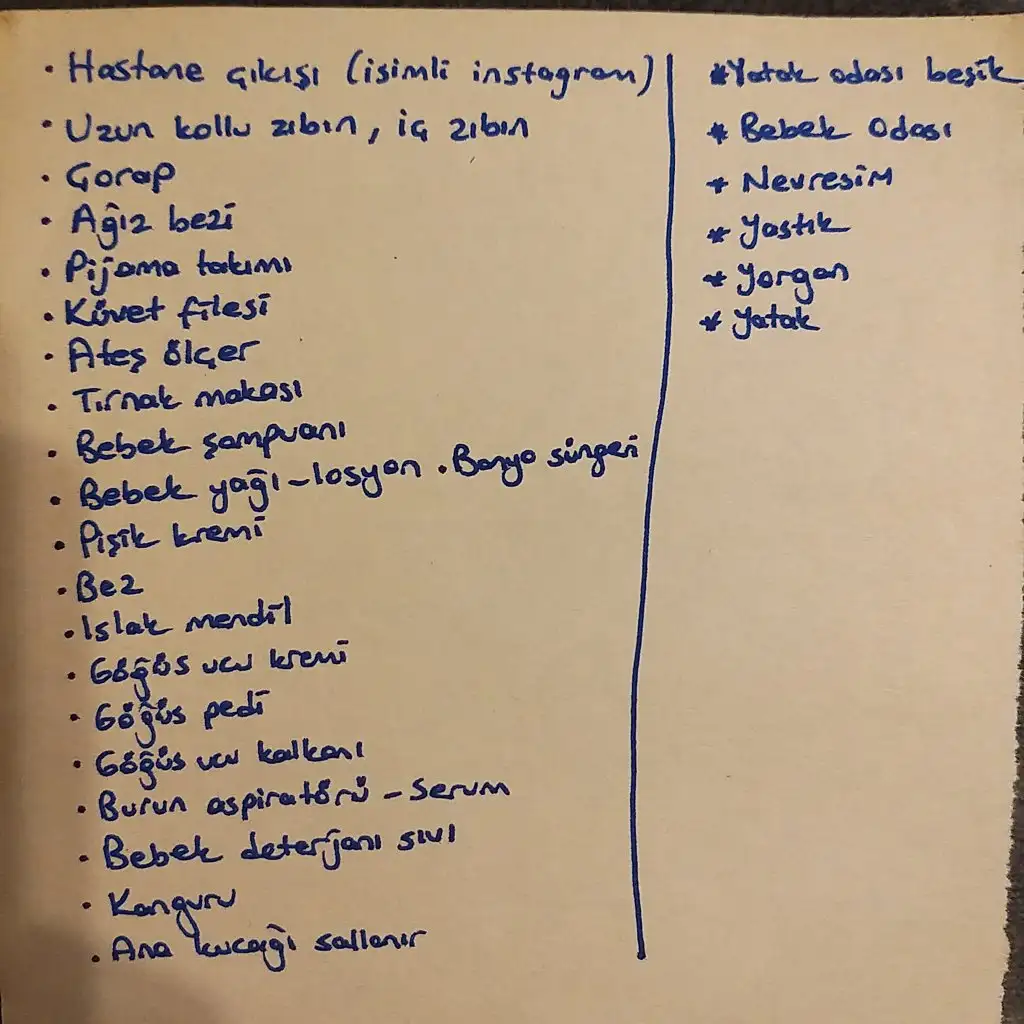 • Hastane çıkışı (isimli instagram)
• Uzun kollu zıbın, iç zıbın
• Çorap
• Ağız bezi
• Pijama takımı
• Küvet filesi
• Ateş ölçer
• Tırnak makası
• Bebek şampuanı
• Bebek yağı - losyon . Banyo süngeri
• Pişik kremi
• Bez
• Islak mendil
• Göğüs ucu kremi
• Göğüs pedi
• Göğüs ucu kalkanı
• Burun aspiratörü - serum
• Bebek deterjanı sıvı
• Kanguru
• Ana kucağı sallanır
* Yatak odası beşik
* Bebek Odası
* Nevresim
* Yastık
* Yorgan
* Yatak